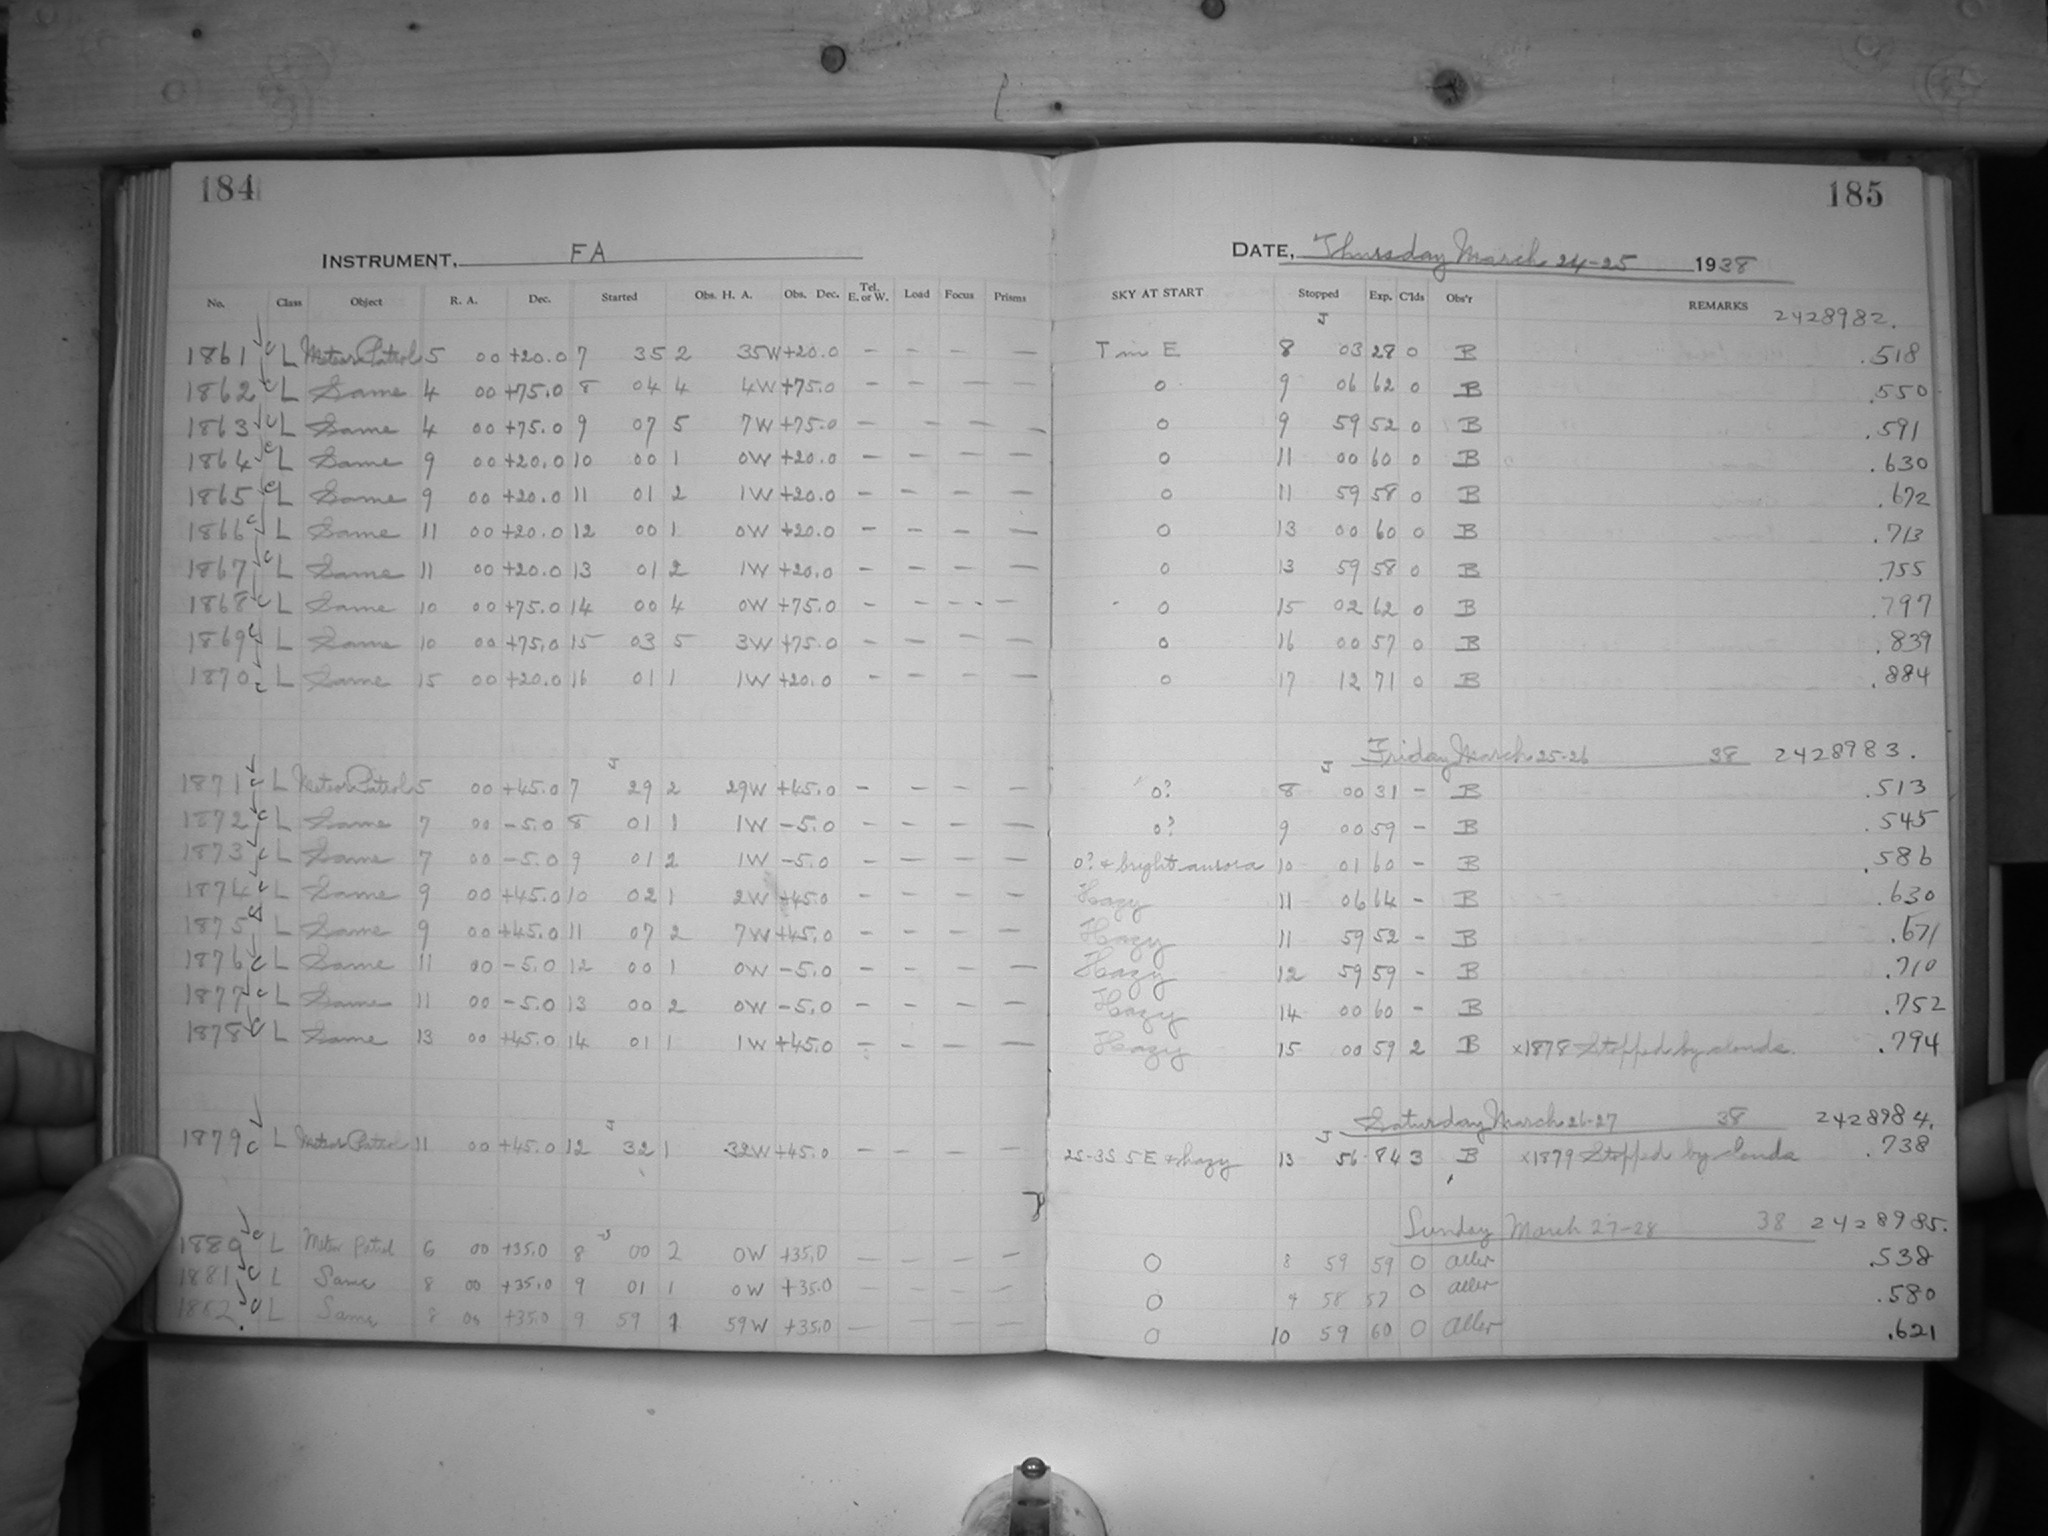 184
185
INSTRUMENT, FA
DATE, Thursday March 24-25 1938
No. Class Object R. A. Dec. Started Obs. H. A. Obs. Dec. Tel. E. or W. Load Focus Prisms SKY AT START Stopped Exp. C'lds Obs'r REMARKS 2428982.
J
1861 c L Meteor Patrol 5 00 +20.0 7 35 2 35W +20.0 – – – – T in E 8 03 28 0 B .518
1862 c L Same 4 00 +75.0 8 04 4 4W +75.0 – – – – 0 9 06 62 0 B .550
1863 c L Same 4 00 +75.0 9 07 5 7W +75.0 – – – – 0 9 59 52 0 B .591
1864 c L Same 9 00 +20.0 10 00 1 0W +20.0 – – – – 0 11 00 60 0 B .630
1865 c L Same 9 00 +20.0 11 01 2 1W +20.0 – – – – 0 11 59 58 0 B .672
1866 c L Same 11 00 +20.0 12 00 1 0W +20.0 – – – – 0 13 00 60 0 B .713
1867 c L Same 11 00 +20.0 13 01 2 1W +20.0 – – – – 0 13 59 58 0 B .755
1868 c L Same 10 00 +75.0 14 00 4 0W +75.0 – – – – 0 15 02 62 0 B .797
1869 c L Same 10 00 +75.0 15 03 5 3W +75.0 – – – – 0 16 00 57 0 B .839
1870 c L Same 15 00 +20.0 16 01 1 1W +20.0 – – – – 0 17 12 71 0 B .884
Friday March 25-26 38 2428983.
J J
1871 c L Meteor Patrol 5 00 +45.0 7 29 2 29W +45.0 – – – – 0? 8 00 31 – B .513
1872 c L Same 7 00 -5.0 8 01 1 1W -5.0 – – – – 0? 9 00 59 – B .545
1873 c L Same 7 00 -5.0 9 01 2 1W -5.0 – – – – 0? + bright aurora 10 01 60 – B .586
1874 c L Same 9 00 +45.0 10 02 1 2W +45.0 – – – – Hazy 11 06 64 – B .630
1875 L Same 9 00 +45.0 11 07 2 7W +45.0 – – – – Hazy 11 59 52 – B .671
1876 c L Same 11 00 -5.0 12 00 1 0W -5.0 – – – – Hazy 12 59 59 – B .710
1877 c L Same 11 00 -5.0 13 00 2 0W -5.0 – – – – Hazy 14 00 60 – B .752
1878 c L Same 13 00 +45.0 14 01 1 1W +45.0 – – – – Hazy 15 00 59 2 B x1878 Stopped by clouds. .794
Saturday March 26-27 38 2428984.
J J
1879 c L Meteor Patrol 11 00 +45.0 12 32 1 32W +45.0 – – – – 2S-3S 5E + hazy 13 56 84 3 B x1879 Stopped by clouds .738
Sunday March 27-28 38 2428985.
J
1880 c L Meteor Patrol 6 00 +35.0 8 00 2 0W +35.0 – – – – 0 8 59 59 0 Aller .538
1881 c L Same 8 00 +35.0 9 01 1 0W +35.0 – – – – 0 9 58 57 0 Aller .580
1882 c L Same 8 00 +35.0 9 59 1 59W +35.0 – – – – 0 10 59 60 0 Aller .621